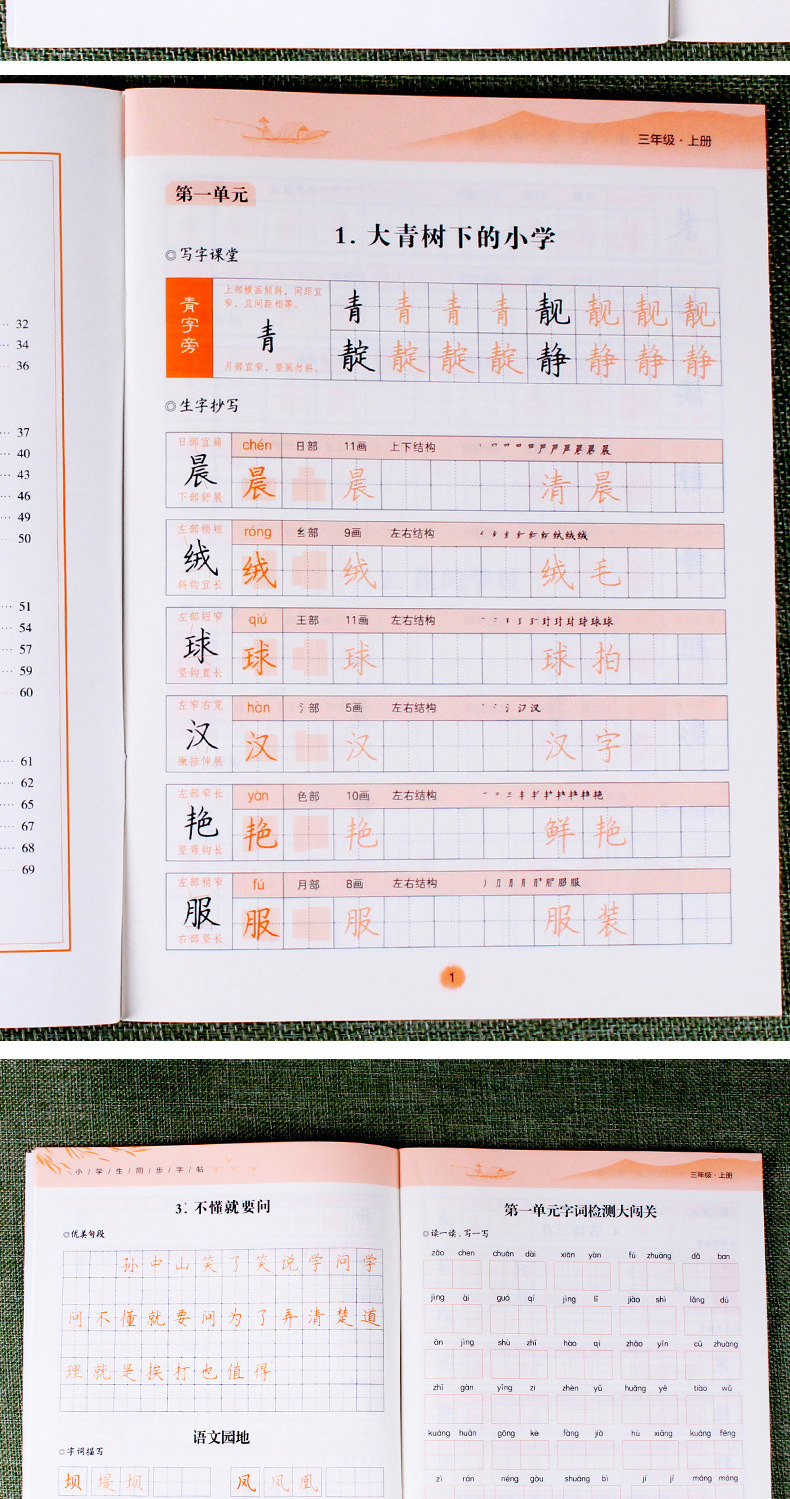 32
34
36
37
40
43
46
49
50
51
54
57
59
60
61
62
65
67
68
69
三年级·上册
第一单元
1. 大青树下的小学
◎写字课堂
青字旁
上部横画倾斜，间距宜
窄，且间距相等。
青
月部宜窄，竖画勿斜。
青 青 青 青 靓 靓 靓 靓
靛 靛 靛 靛 静 静 静 静
◎生字抄写
日部宜扁
晨
下部舒展
chén 日部 11画 上下结构
晨 晨 清 晨
左部稍短
绒
斜钩宜长
róng 纟部 9画 左右结构
绒 绒 绒 毛
左部短窄
球
竖钩直长
qiú 王部 11画 左右结构
球 球 球 拍
左窄右宽
汉
撇捺伸展
hàn 氵部 5画 左右结构
汉 汉 汉 字
左部窄长
艳
竖弯钩长
yàn 色部 10画 左右结构
艳 艳 鲜 艳
左部稍窄
服
右部竖长
fú 月部 8画 左右结构
服 服 服 装
1
小/学/生/同/步/字/帖
3. 不懂就要问
◎优美句段
孙中山笑了笑说学问学
问不懂就要问为了弄清楚道
理就是挨打也值得
语文园地
◎字词描写
坝 堤 坝 凤 凤 凰
三年级·上册
第一单元字词检测大闯关
◎读一读，写一写
zǎo chen chuān dài xiān yàn fú zhuāng dǎ ban
jìng ài guó qí jìng lǐ jiào shì lǎng dú
ān jìng shù zhī hào qí zhāo yǐn cū zhuàng
zhī gàn yīng zī zhèn yǔ huāng yě tiào wǔ
kuáng huān gōng kè fàng jià hù xiāng kuáng fēng
zì rán néng gòu shuāng bì jí jí máng máng